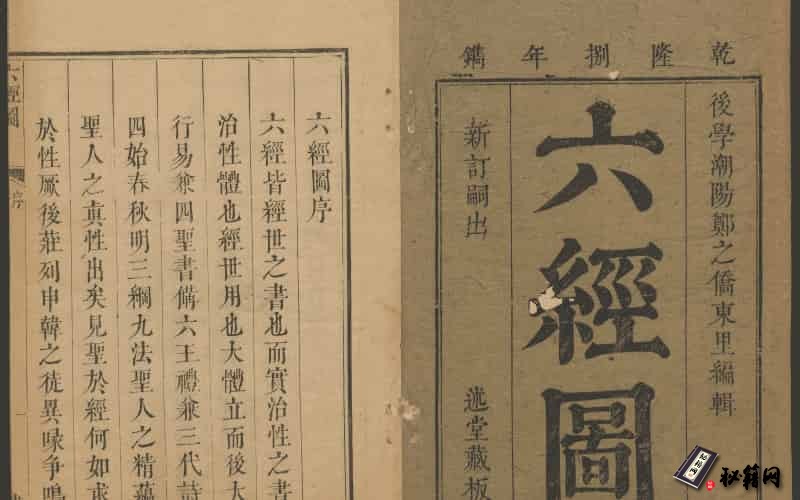 乾隆捌年鐫
後學潮陽鄭之僑東里編輯
六經圖
新訂嗣出
述堂藏板
六經圖序
六經皆經世之書也而實治性之書
治性體也經世用也大體立而後大
行易兼四聖書備六王禮兼三代詩
四始春秋明三綱九法聖人之精蘊
聖人之真性出矣見聖於經何如求
於性厥後莊列申韓之徒異喙爭鳴
六經圖
序
秘籍网
秘籍网